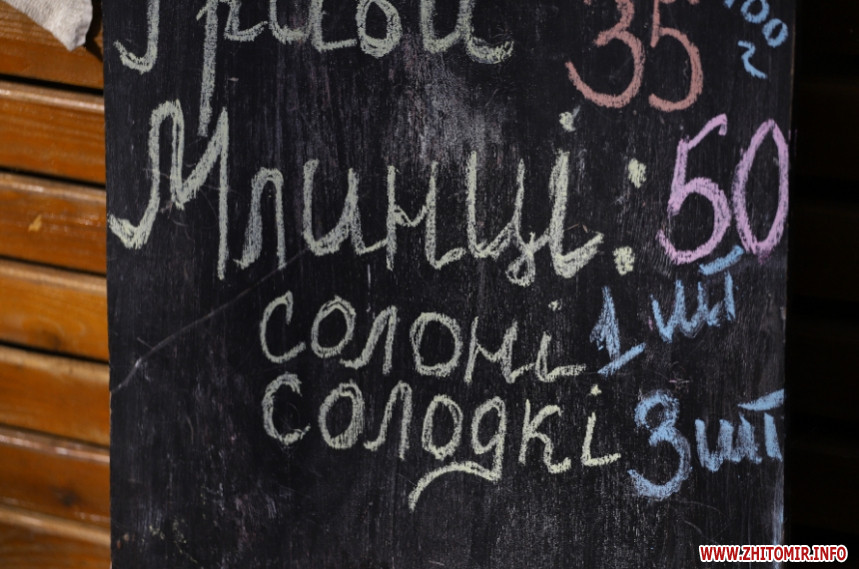 Гриби 35 100 г
Млинці: 50
солоні 1 шт
солодкі 3 шт
WWW.ZHITOMIR.INFO